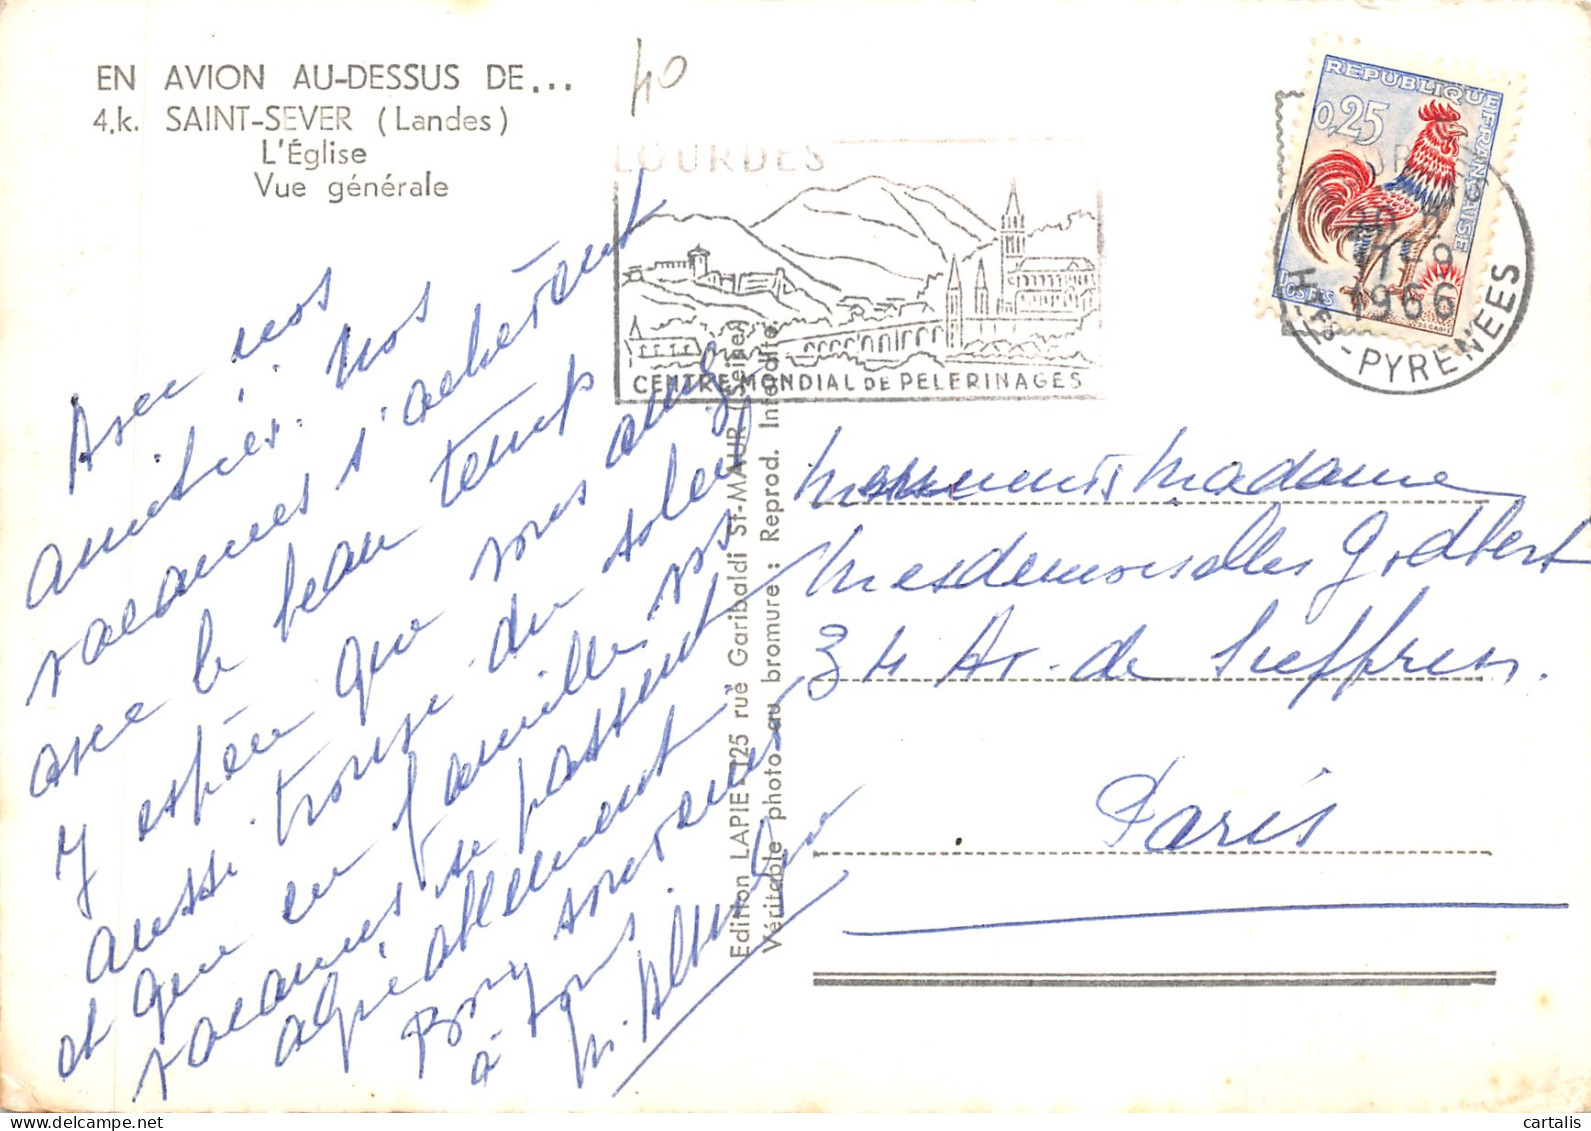 EN AVION AU-DESSUS DE...
4.k. SAINT-SEVER (Landes)
L'Église
Vue générale
40
LOURDES
CENTRE MONDIAL DE PELERINAGES
REPUBLIQUE FRANÇAISE
0,25
POSTES
1966
HTES-PYRENEES
Avec nos
amitiés. Nos
vacances s'achèvent
avec le beau temps
J'espère que vous avez
aussi trouvé du soleil
et que en famille vos
vacances se passent
agréablement
Bons souvenirs
à tous.
Edition LAPIE 125 rue Garibaldi St-MAUR (Seine)
Véritable photo au bromure : Reprod. Interdite
Madame
Mesdemoiselles Godbert
34 Av. de Suffren.
Paris
cartalis